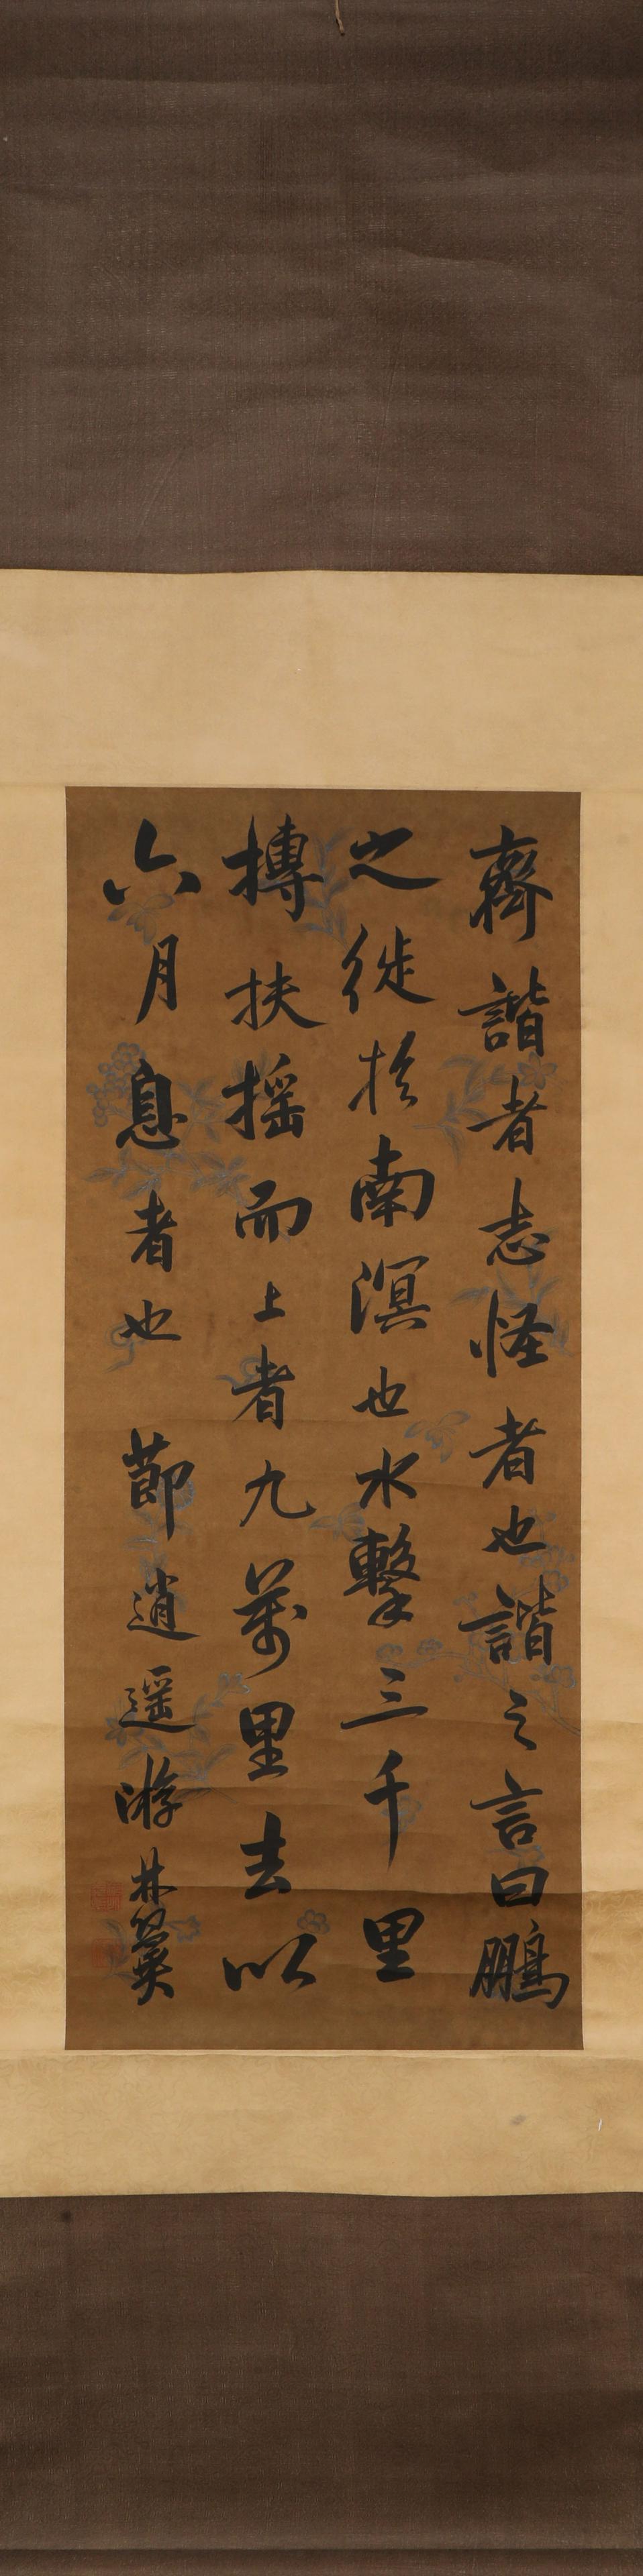 齊諧者志怪者也諧之言曰鵬
之徙於南溟也水擊三千里
摶扶搖而上者九萬里去以
六月息者也 節逍遥游林